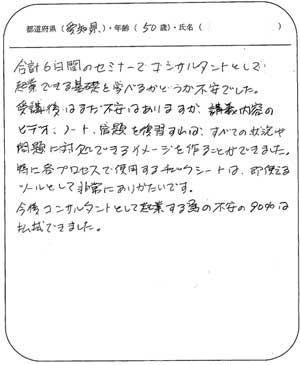 都道府県（愛知県）・年齢（50歳）・氏名（　　　）
合計6日間のセミナーでコンサルタントとして
起業できる基礎を学べるかどうか不安でした。
受講後はまだ不安はありますが、講義内容の
ビデオ、ノート、宿題を復習すれば、すべての状況や
問題に対処できるイメージを作ることができました。
特に各プロセスで使用するチェックシートは、即使える
ツールとして非常にありがたいです。
今後コンサルタントとして起業する為の不安の90%は
払拭できました。